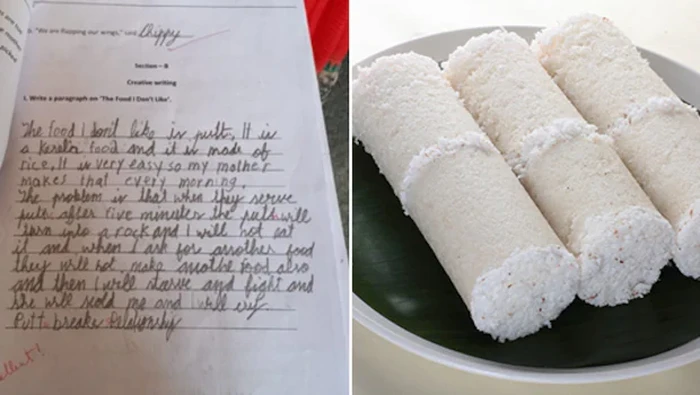 b. "We are flapping our wings," said Chippy
Section – B
Creative writing
I. Write a paragraph on 'The Food I Don't Like'.
The food I don't like is putt, It is
a Kerala food and it is made of
rice, It is very easy so my mother
makes that every morning.
The problem is that when they serve
putt after five minutes the putt will
turn into a rock and I will not eat
it and when I ask for another food
they will not make anothe food also
and then I will starve and fight and
she will scold me and I will cry.
Putt breaks Relationship